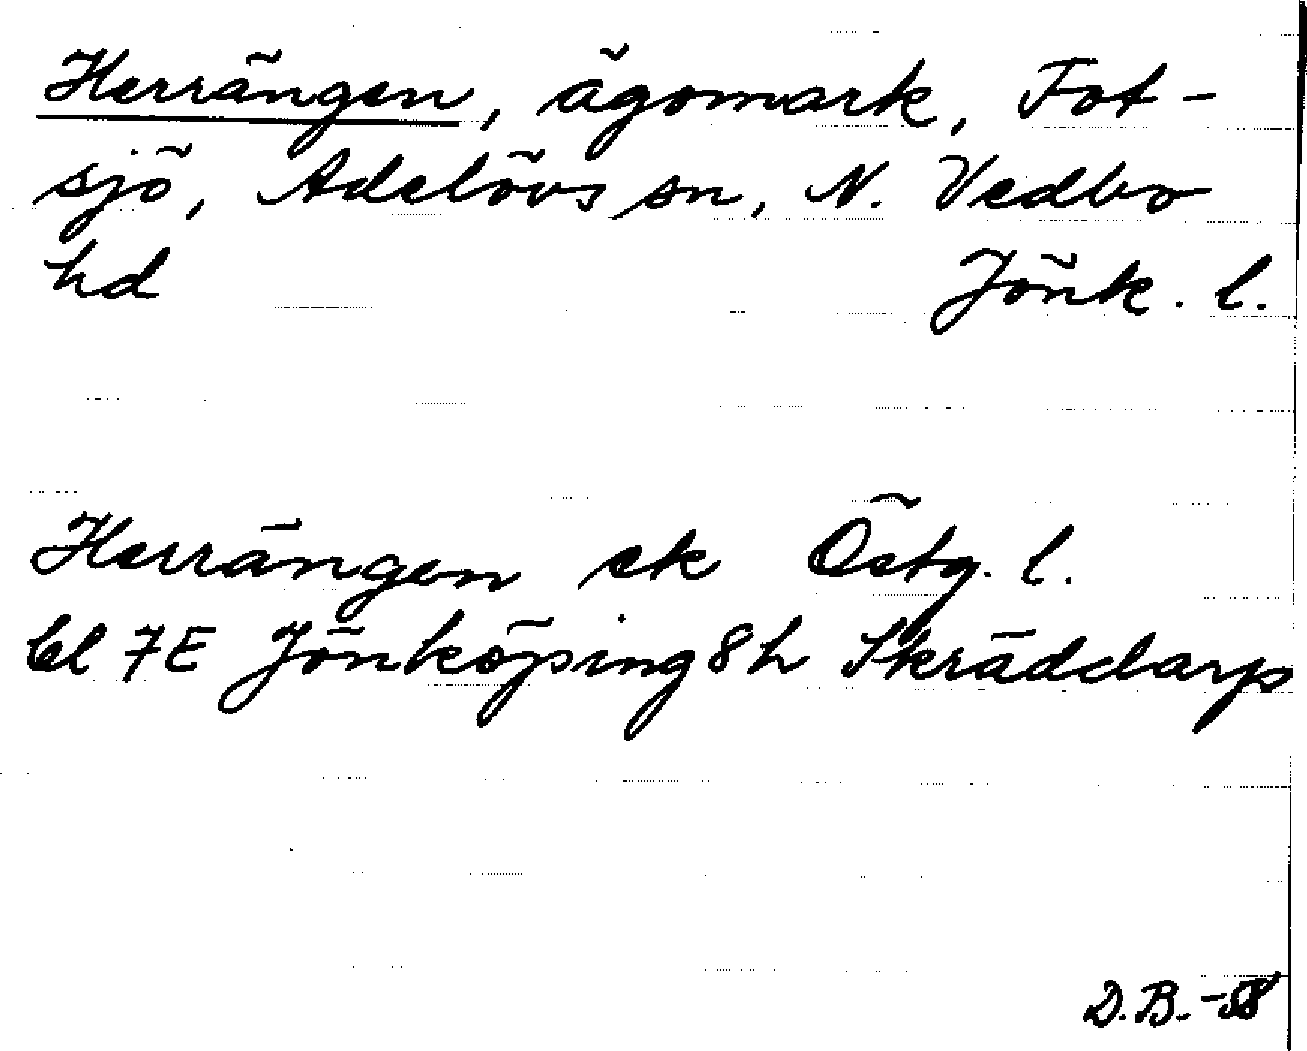 Herrängen, ägomark, Fot-
sjö, Adelövs sn, N. Vedbo
hd Jönk. l.
Herrängen ek Östg. l.
bl 7E Jönköping 8h Skräddarp
D.B. -58